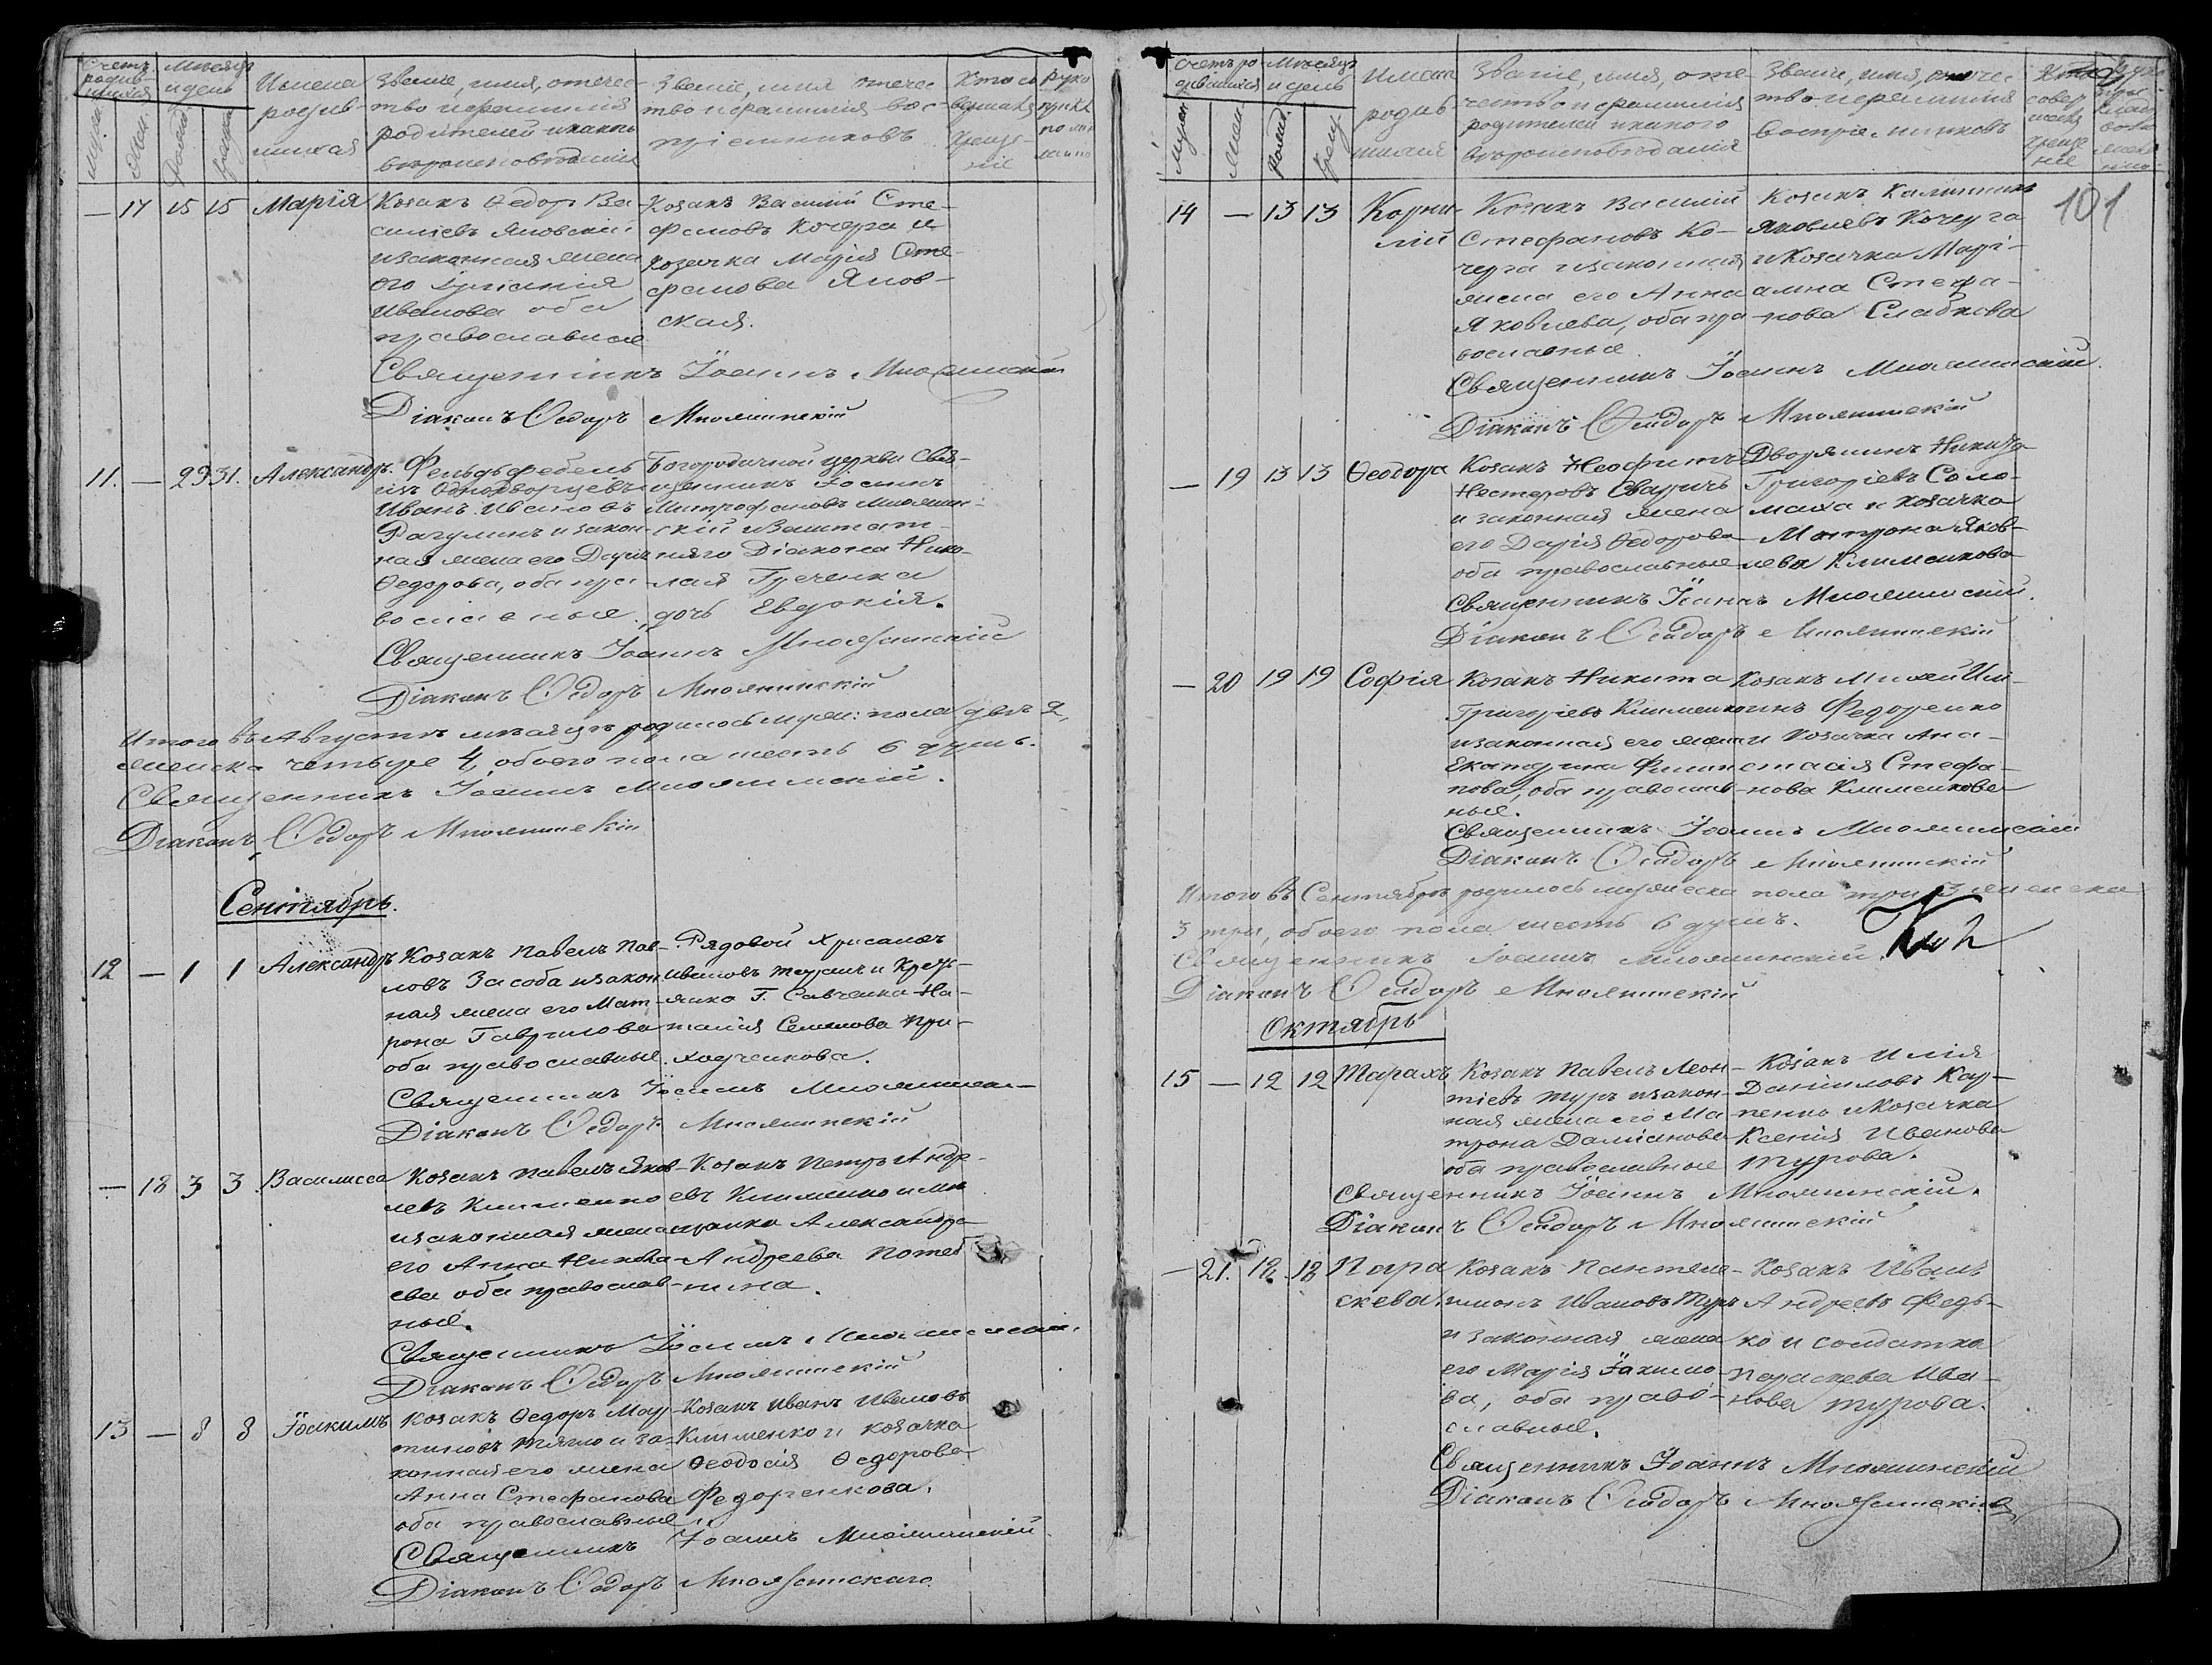 Счетъ родив-шихся
Мѣсяцъ и день
Имена родив-шихся
Званіе, имя, отчес-тво и фамилія родителей и какого вѣроисповѣданія
Званіе, имя отчес-тво и фамилія вос-пріемниковъ
Кто со-вершалъ креще-ніе
— 17 15 15 Марія
Козакъ Ѳедоръ Ва-
силіевъ Яновскій
и законная жена
его Іуліанія
Иванова оба
православные
Козакъ Василій Сте-
фановъ Кочерга и
козачка Марія Сте-
фанова Янов-
ская.
Священникъ Іоаннъ Мнояминскій
Діаконъ Ѳеодоръ Мнояминскій
11. — 29 31. Александръ.
Фельдфебель
изъ Однодворцевъ
Иванъ Ивановъ
Рагулинъ и закон-
ная жена его Дарія
Ѳедорова, оба пра-
вославные.
Богородичной церкви Свя-
щенникъ Іоаннъ
Митрофановъ Мноямин-
скій и Заштат-
наго Діакона Нико-
лая Греченка
дочь Евдокія.
Священникъ Іоаннъ Мнояминскій
Діаконъ Ѳеодоръ Мнояминскій
Итого въ Августѣ мѣсяцѣ родилось муж: пола два 2,
женска четыре 4, обоего пола шесть 6 душъ.
Священникъ Іоаннъ Мнояминскій.
Діаконъ, Ѳеодоръ Мнояминскій
Сентябрь.
12 — 1 1 Александръ
Козакъ Павелъ Пав-
ловъ Засоба и закон
ная жена его Мат-
рона Гаврилова
оба православные.
Рядовой Хрисанѳъ
Ивановъ и
Г. Савченка На-
талія Семенова При-
ходченкова.
Священникъ Іоаннъ
Діаконъ Ѳеодоръ Мнояминскій
— 18 3 3 Василисса
Козакъ Павелъ Яков-
левъ Клименко
и законная жена
его Анна Никола-
ева оба православ-
ные.
Козакъ Петръ Андре-
евъ Клименко и мѣ
щанка Александра
Андреева Потеб
нина.
Священникъ Іоаннъ Мнояминскій.
Діаконъ Ѳеодоръ Мнояминскій
13 — 8 8 Іоакимъ
Козакъ Ѳедоръ Мар-
тиновъ Тягло и за-
конная его жена
Анна Стефанова
оба православные
Козакъ Иванъ Ивановъ
Клименко и козачка
Ѳеодосія Ѳедорова
Федоренкова.
Священникъ Іоаннъ Мнояминскій
Діаконъ Ѳеодоръ Мнояминскаго
Счетъ ро-дившихся
Мѣсяцъ и день
Имена родив-шихся
Званіе, имя, оте-чество и фамилія родителей и какого вѣроисповѣданія
Званіе, имя, отчес-тво и фамилія воспріемниковъ
Кто совер-шалъ креще-ніе
101
14 — 13 13 Корни-
лій
Козакъ Василій
Стефановъ Ко-
черга и законная
жена его Анна
Яковлева, оба пра-
вославные.
Козакъ Калинникъ
Яковлевъ Кочерга
и Козачка Марі-
амна Стефа-
нова Слабкова
Священникъ Іоаннъ Мнояминскій.
Діаконъ Ѳеодоръ Мнояминскій
— 19 13 13 Ѳеодора
Козакъ Неофитъ
Нестеровъ Сваричъ
и законная жена
его Дарія Ѳедорова
оба православные
Дворянинъ Никита
Григоріевъ Соло-
маха и козачка
Матрона Яков-
лева Клименкова
Священникъ Іоаннъ Мнояминскій.
Діаконъ Ѳеодоръ Мнояминскій
— 20 19 19 Софія
Козакъ Никита
Григоріевъ Клименко
и законная его жена
Екатерина Филип
пова, оба православ-
ные.
Козакъ
Федоренко
и Козачка Ана-
стасія Стефа-
нова Клименкова
Священникъ Іоаннъ Мнояминскій
Діаконъ Ѳеодоръ Мнояминскій
Итого въ Сентябрѣ родилось мужеска пола три 3 женска
3 три, обоего пола шесть 6 душъ.
Священникъ Іоаннъ Мнояминскій.
Діаконъ Ѳеодоръ Мнояминскій
Октябрь
15 — 12 12 Тарахъ
Козакъ Павелъ Леон-
тіевъ Туръ и закон-
ная жена его Ма
трона Даміанова
оба православные
Козакъ Илія
Даніиловъ Кар-
пенко и Козачка
Ксенія Иванова
Турова.
Священникъ Іоаннъ Мнояминскій.
Діаконъ Ѳеодоръ Мнояминскій
— 21. 18 18 Пара
скева.
Козакъ Пантеле-
имонъ Ивановъ Туръ
и законная жена
его Марія Іакимо
ва, оба право-
славные.
Козакъ Иванъ
Андреевъ Федь-
ко и солдатка
Параскева Ива-
нова Турова.
Священникъ Іоаннъ Мнояминскій
Діаконъ Ѳеодоръ Мнояминскій